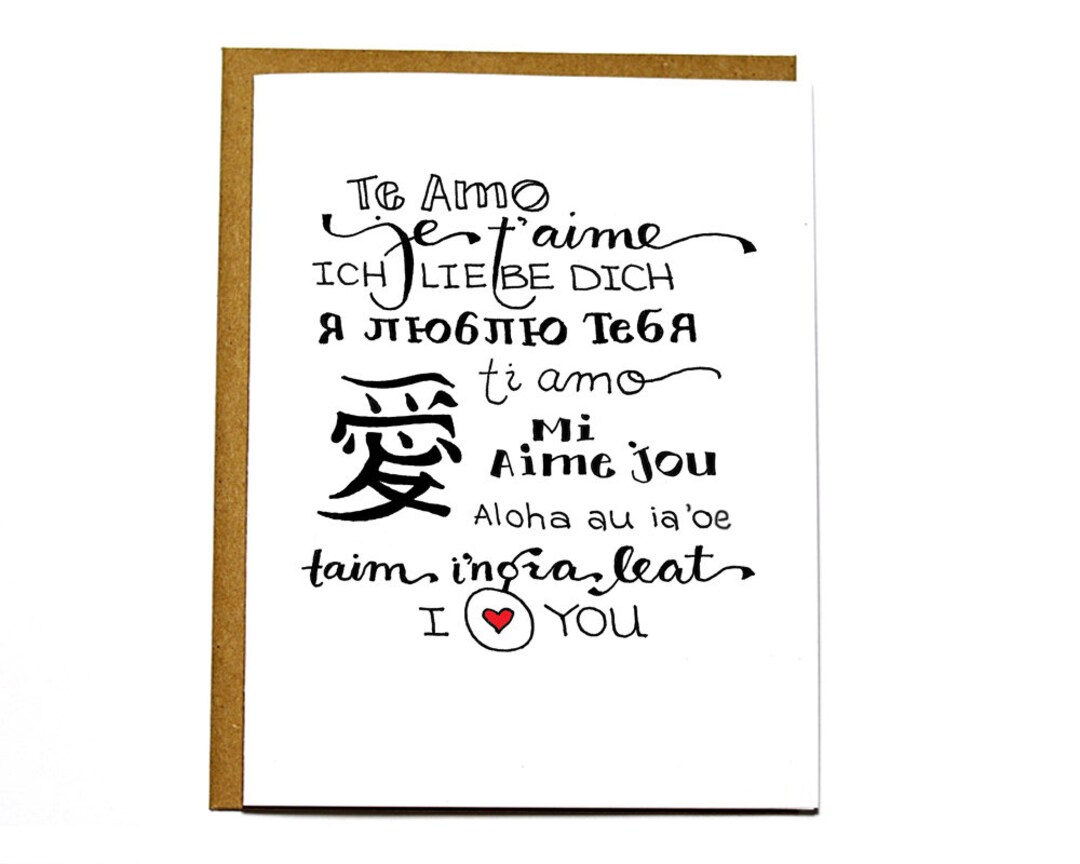 Te Amo
je t'aime
ICH LIEBE DICH
Я люблю Тебя
愛
ti amo
Mi
Aime Jou
Aloha au ia'oe
taim i'ngra leat
I ♥ YOU